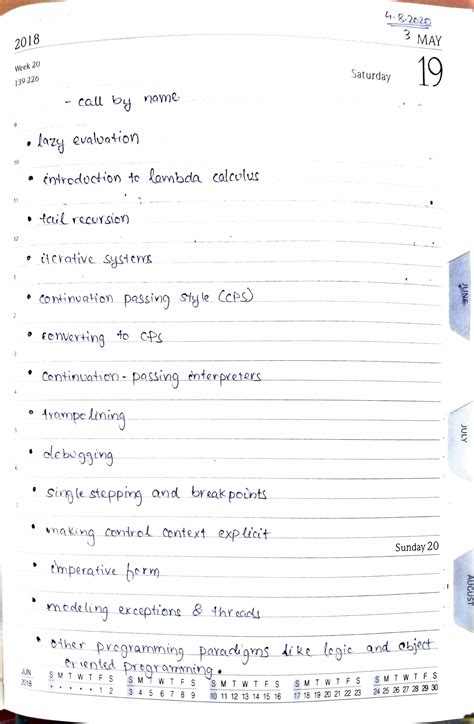 4.8.2020
2018
3 MAY
Week 20
139 226
Saturday 19
- call by name
9
• lazy evaluation
10
• introduction to lambda calculus
11
• tail recursion
12
• iterative systems
1
• continuation passing style (CPS)
2
• converting to CPS
3
• continuation-passing interpreters
4
• trampolining
5
• debugging
6
• single stepping and breakpoints
7
• making control context explicit
Sunday 20
• imperative form
• modeling exceptions & threads
• other programming paradigms like logic and object
oriented programming.
JUNE
JULY
AUGUST
JUN S M T W T F S S M T W T F S S M T W T F S S M T W T F S S M T W T F S
2018 • • • • • 1 2 3 4 5 6 7 8 9 10 11 12 13 14 15 16 17 18 19 20 21 22 23 24 25 26 27 28 29 30